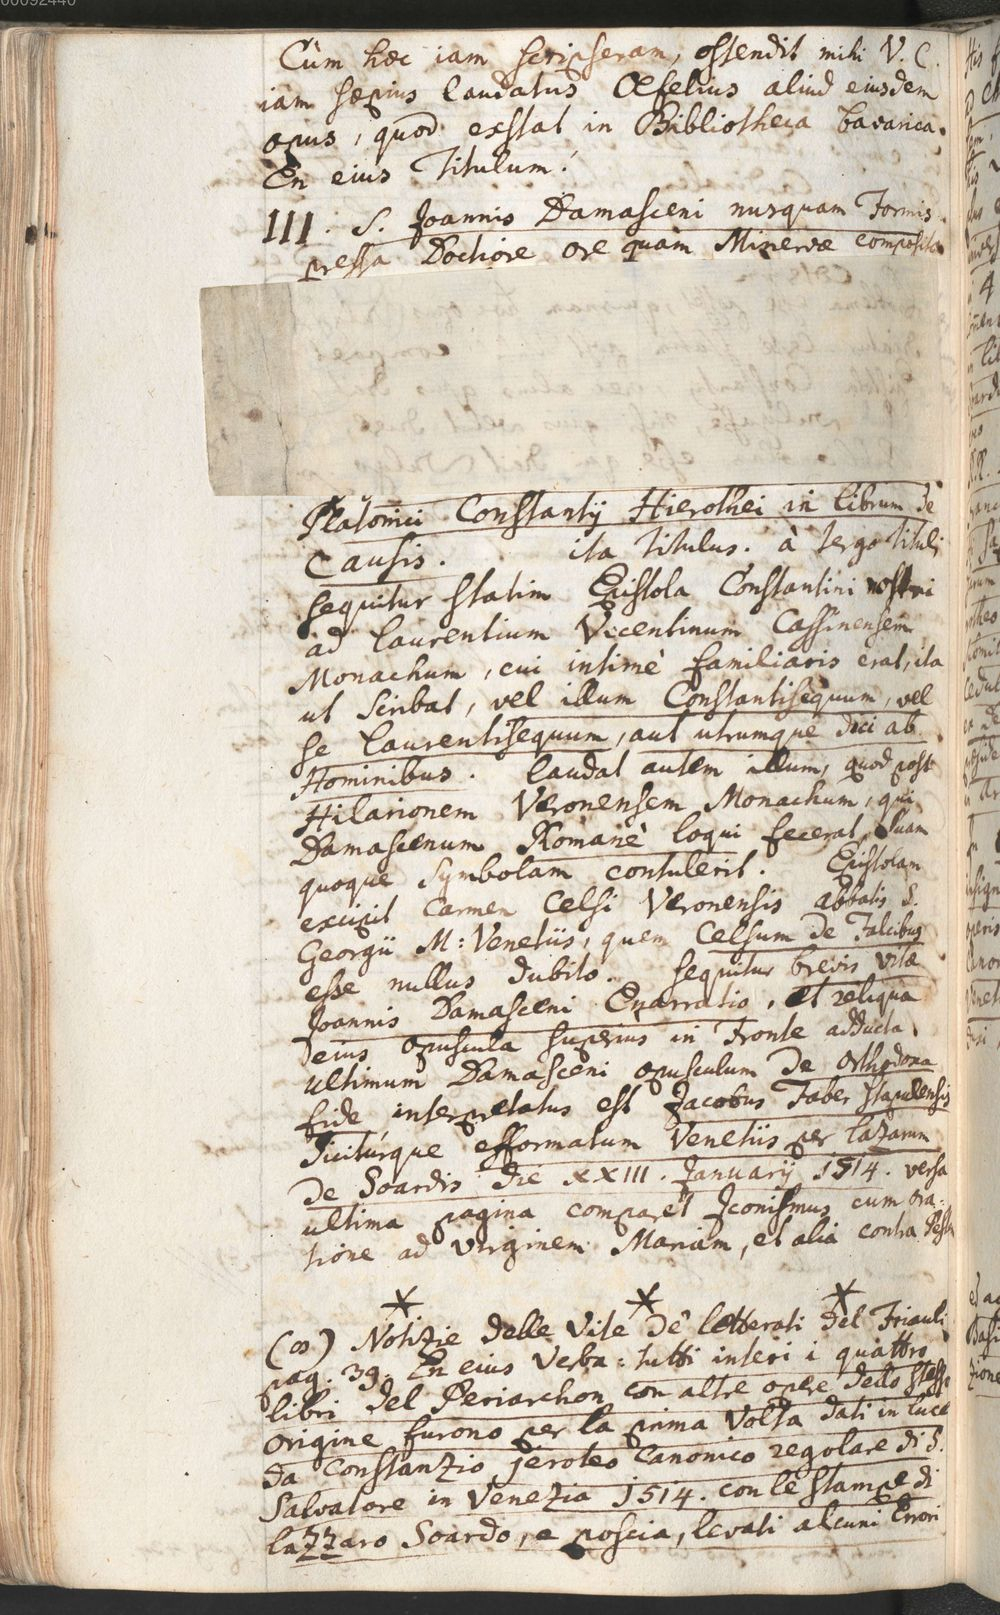 00092440
Cùm hæc iam scripseram, ostendit mihi V. C.
iam sæpius laudatus Œfelius aliud eiusdem
opus, quod exstat in Bibliotheca bavarica.
En eius Titulum!
III. S. Joannis Damasceni nusquam Formis
pressa Doctiore ore quàm Minervæ composita
Platonici Constantij Hierothei in librum de
Causis. ita titulus. à tergo tituli
sequitur statim Epistola Constantini nostri
ad Laurentium Vicentinum Cassinensem
Monachum, cui intimè familiaris erat, ita
ut scribat, vel illum Constantisequum, vel
se Laurentisequum, aut utrumque dici ab
Hominibus. laudat autem illum, quod post
Hilarionem Veronensem Monachum, qui
Damascenum Romanè loqui fecerat, suam
quoque Symbolam contulerit. Epistolam
excipit Carmen Celsi Veronensis abbatis S.
Georgii M: Venetiis, quem Celsum de Falcibus
esse nullus dubito. Sequitur brevis vitæ
Joannis Damasceni Enarratio. et reliqua
eius opuscula superius in Fronte adducta.
ultimum Damasceni opusculum de orthodoxa
fide interpretatus est Jacobus Faber Stapulensis
diciturque efformatum Venetiis per lazarum
de Soardis die XXIII. Januarij 1514. versa
ultima pagina comparet Iconismus cum ora-
tione ad Virginem Mariam, et alia contra Pestem
* * *
(oo) Notizie delle Vite de' letterati del Friauli
pag. 39. En eius verba: tutti interi i quattro
libri del Periarchon con altre opere dello stesso
origine furono per la prima volta dati in luce
da Constanzio jeroteo Canonico regolare di S.
Salvatore in Venezia 1514. con le stampe di
lazzaro Soardo, e poscia, levati alcuni Errori